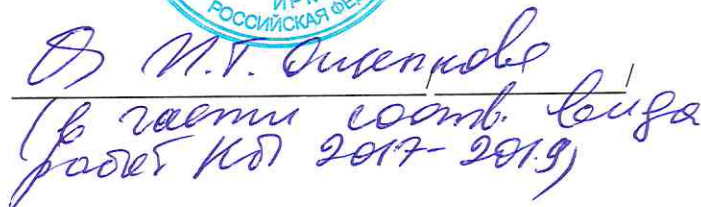 РОССИЙСКАЯ ФЕ
И.Г. Ощепкова
(в части соотв. вида
работ КП 2017-2019)